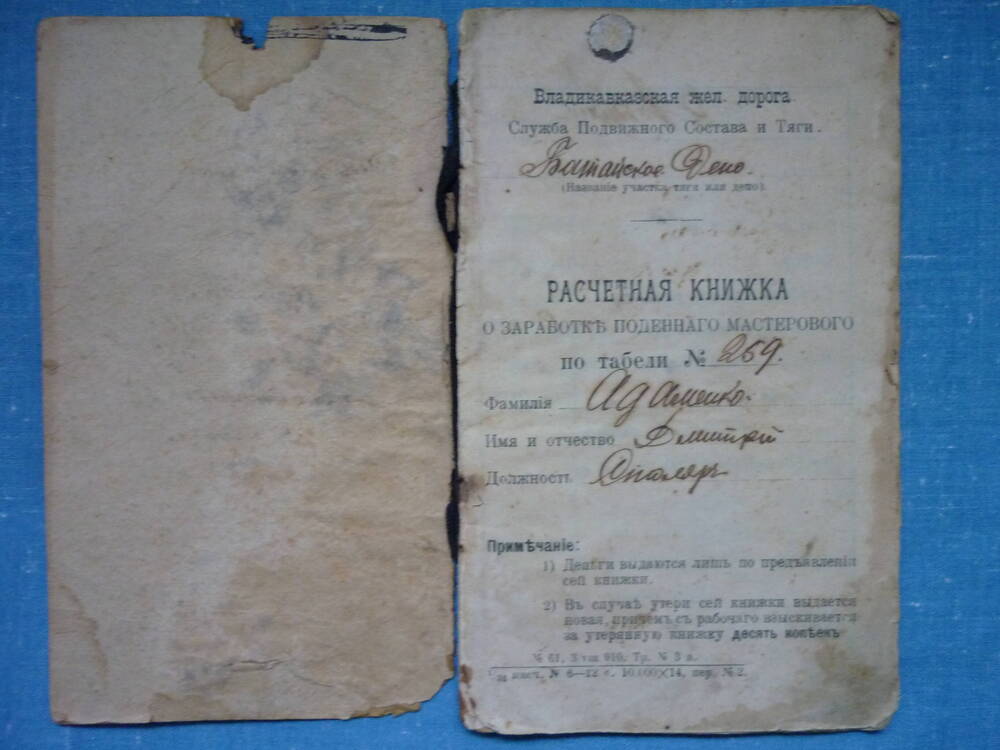 Владикавказская жел. дорога.
Служба Подвижного Состава и Тяги.
Батайское Депо.
(Названіе участка тяги или депо)
РАСЧЕТНАЯ КНИЖКА
О ЗАРАБОТКѢ ПОДЕННАГО МАСТЕРОВОГО
по табели № 269.
Фамилія Адаменко.
Имя и отчество Дмитрій
Должность Столяръ
Примѣчаніе:
1) Деньги выдаются лишь по предъявленіи
сей книжки.
2) Въ случаѣ утери сей книжки выдается
новая, причемъ съ рабочаго взыскивается
за утерянную книжку десять копѣекъ
№ 61, 3 910. Тр. № 3 л.
№ 6—12 с. 10.000×14, пер. № 2.